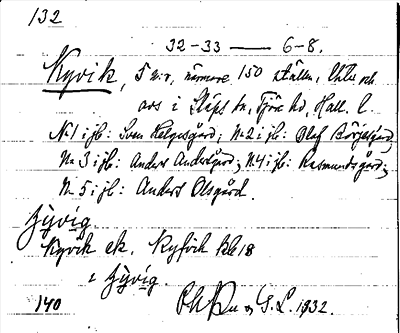 132
32-33 — 6-8.
Kyvik, 5 nr, närmare 150 ställen, Uteby och
avs i Släps sn, Fjäre hd, Hall. l.
N:1 i jb: Sven Helgesgård; N:2 i jb: Olof Börjesgård;
N:3 i jb: Anders Andersgård; N:4 i jb: Rasmundsgård;
N:5 i jb: Anders Olsgård.
çy̆vig
Kyvik ek. Kyfvik kb 18
2 çy̆vig.
140 G.L. 1932.